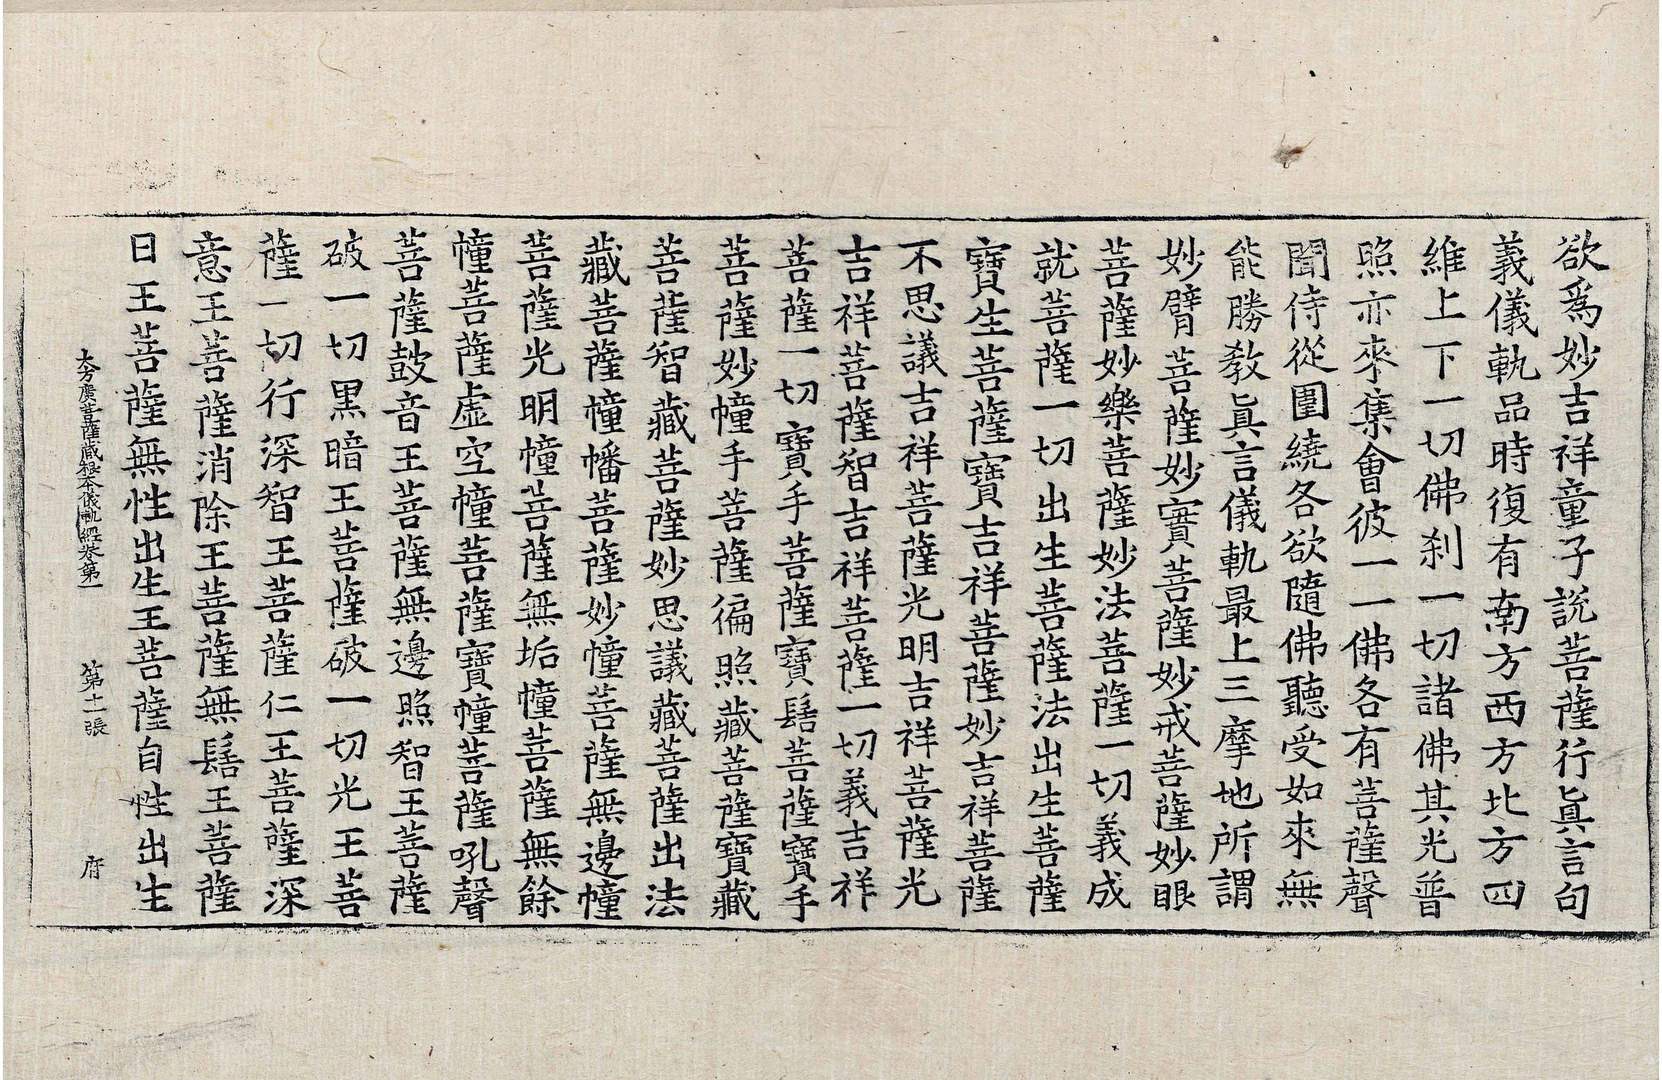 欲爲妙吉祥童子說菩薩行眞言句
義儀軌品時復有南方西方北方四
維上下一切佛刹一切諸佛其光普
照亦來集會彼一一佛各有菩薩聲
聞侍從圍繞各欲隨佛聽受如來無
能勝教眞言儀軌最上三摩地所謂
妙臂菩薩妙寶菩薩妙戒菩薩妙眼
菩薩妙樂菩薩妙法菩薩一切義成
就菩薩一切出生菩薩法出生菩薩
寶生菩薩寶吉祥菩薩妙吉祥菩薩
不思議吉祥菩薩光明吉祥菩薩光
吉祥菩薩智吉祥菩薩一切義吉祥
菩薩一切寶手菩薩寶髻菩薩寶手
菩薩妙幢手菩薩徧照藏菩薩寶藏
菩薩智藏菩薩妙思議藏菩薩出法
藏菩薩幢幡菩薩妙幢菩薩無邊幢
菩薩光明幢菩薩無垢幢菩薩無餘
幢菩薩虛空幢菩薩寶幢菩薩吼聲
菩薩鼓音王菩薩無邊照智王菩薩
破一切黑暗王菩薩破一切光王菩
薩一切行深智王菩薩仁王菩薩深
意王菩薩消除王菩薩無髻王菩薩
日王菩薩無性出生王菩薩自性出生
大方廣菩薩藏經本儀軌經卷第一　第十一張　府